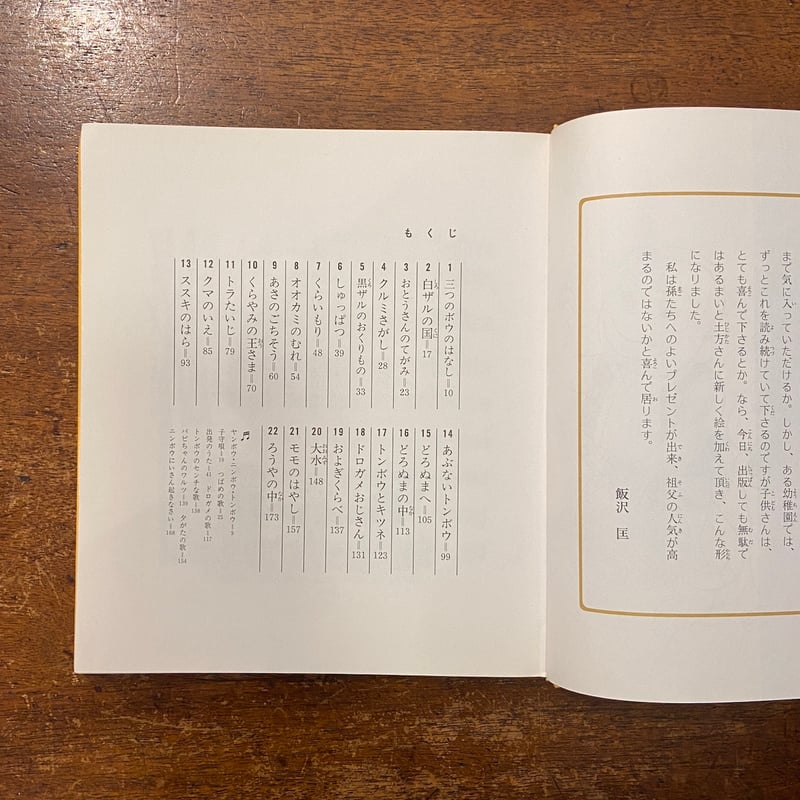 まで気に入っていただけるか。しかし、ある幼稚園では、
ずっとこれを読み続けていて下さるのですが子供さんは、
とても喜んで下さるとか。なら、今日、出版しても無駄で
はあるまいと土方さんに新しく絵を加えて頂き、こんな形
になりました。
私は孫たちへのよいプレゼントが出来、祖父の人気が高
まるのではないかと喜んで居ります。
飯沢 匡
もくじ
1 三つのボウのはなし=10
2 白ザルの国=17
3 おとうさんのてがみ=23
4 クルミさがし=28
5 黒ザルのおくりもの=33
6 しゅっぱつ=39
7 くらいもり=48
8 オオカミのむれ=54
9 あさのごちそう=60
10 くらやみの王さま=70
11 トラたいじ=79
12 クマのいえ=85
13 ススキのはら=93
14 あぶないトンボウ=99
15 どろぬまへ=105
16 どろぬまの中=113
17 トンボウとキツネ=123
18 ドロガメおじさん=131
19 およぎくらべ=137
20 大水=148
21 モモのはやし=157
22 ろうやの中=173
♬
ヤンボウ・ニンボウ・トンボウ=9
子守唄=19 つばめの歌=25
出発のうた=41 ドロガメの歌=117
トンボウのセンチな歌=138
パピちゃんのワルツ=139 夕がたの歌=154
ニンボウにいさん起きなさい=168